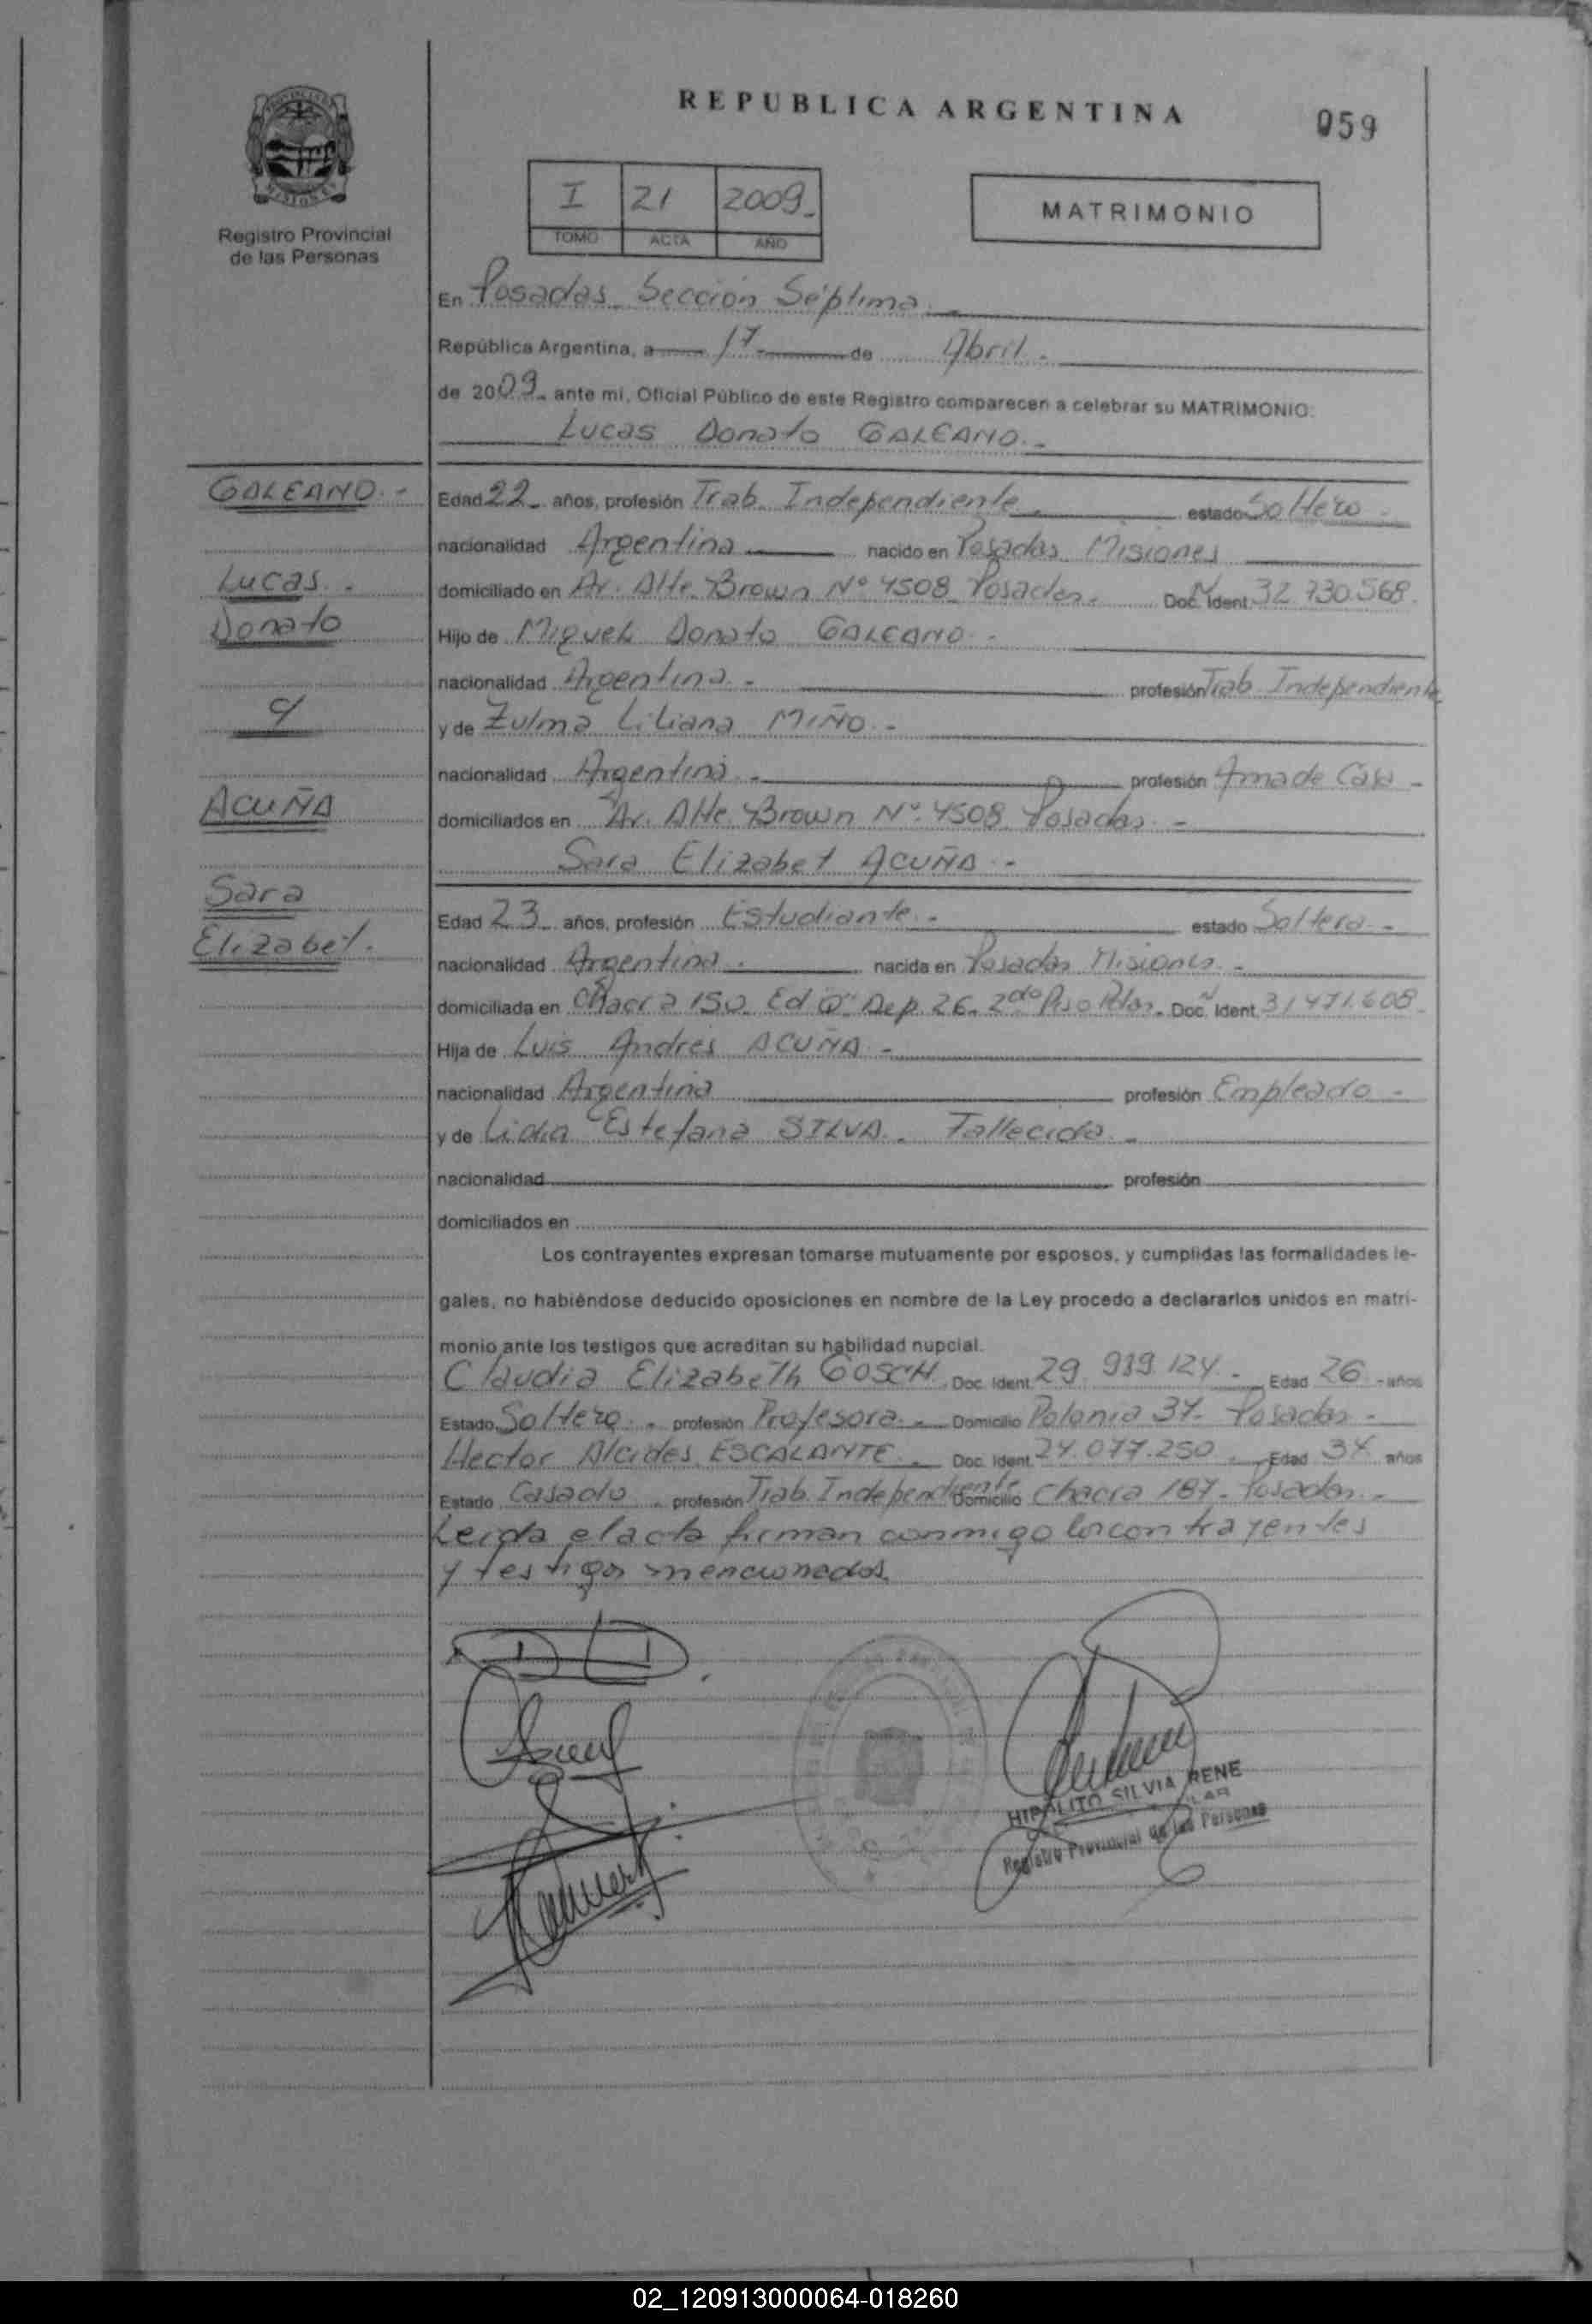 REPUBLICA ARGENTINA
059
PROVINCIA DE
MISIONES
Registro Provincial
de las Personas
I 21 2009.
TOMO ACTA AÑO
MATRIMONIO
En Posadas Sección Séptima
República Argentina, a 17 de Abril.
de 2009 ante mi, Oficial Público de este Registro comparecen a celebrar su MATRIMONIO:
Lucas Donato GALEANO.-
GALEANO.-
Lucas.-
Donato
y
ACUÑA
Sara
Elizabet.
Edad 22 años, profesión Trab. Independiente estado Soltero
nacionalidad Argentina nacido en Posadas Misiones
domiciliado en Av. Alte. Brown Nº 4508 Posadas. Doc. Ident. 32.730.568.
Hijo de Miguel Donato GALEANO.-
nacionalidad Argentina.- profesión Trab. Independiente
y de Zulma Liliana MIÑO.-
nacionalidad Argentina.- profesión Ama de Casa -
domiciliados en Av. Alte. Brown Nº 4508 Posadas -
Sara Elizabet ACUÑA.-
Edad 23 años, profesión Estudiante.- estado Soltera.-
nacionalidad Argentina. nacida en Posadas Misiones.-
domiciliada en Chacra 150 Ed Dep. 26. 2do Piso Doc. Ident. 31.471.608.
Hija de Luis Andrés ACUÑA -
nacionalidad Argentina profesión Empleado -
y de Lidia Estefana SILVA. Fallecida.-
nacionalidad profesión
domiciliados en
Los contrayentes expresan tomarse mutuamente por esposos, y cumplidas las formalidades le-
gales, no habiéndose deducido oposiciones en nombre de la Ley procedo a declararlos unidos en matri-
monio ante los testigos que acreditan su habilidad nupcial.
Claudia Elizabeth GOSCH Doc. Ident. 29.939.124.- Edad 26 - años
Estado Soltera.- profesión Profesora.- Domicilio Polonia 37- Posadas -
Hector Alcides ESCALANTE. Doc. Ident. 24.077.250 Edad 34 años
Estado Casado profesión Trab. Independiente Domicilio Chacra 187- Posadas.-
Leída el acta firman conmigo los contrayentes
y testigos mencionados.
HIPOLITO SILVIA RENE
Registro Provincial de las Personas
02_120913000064-018260